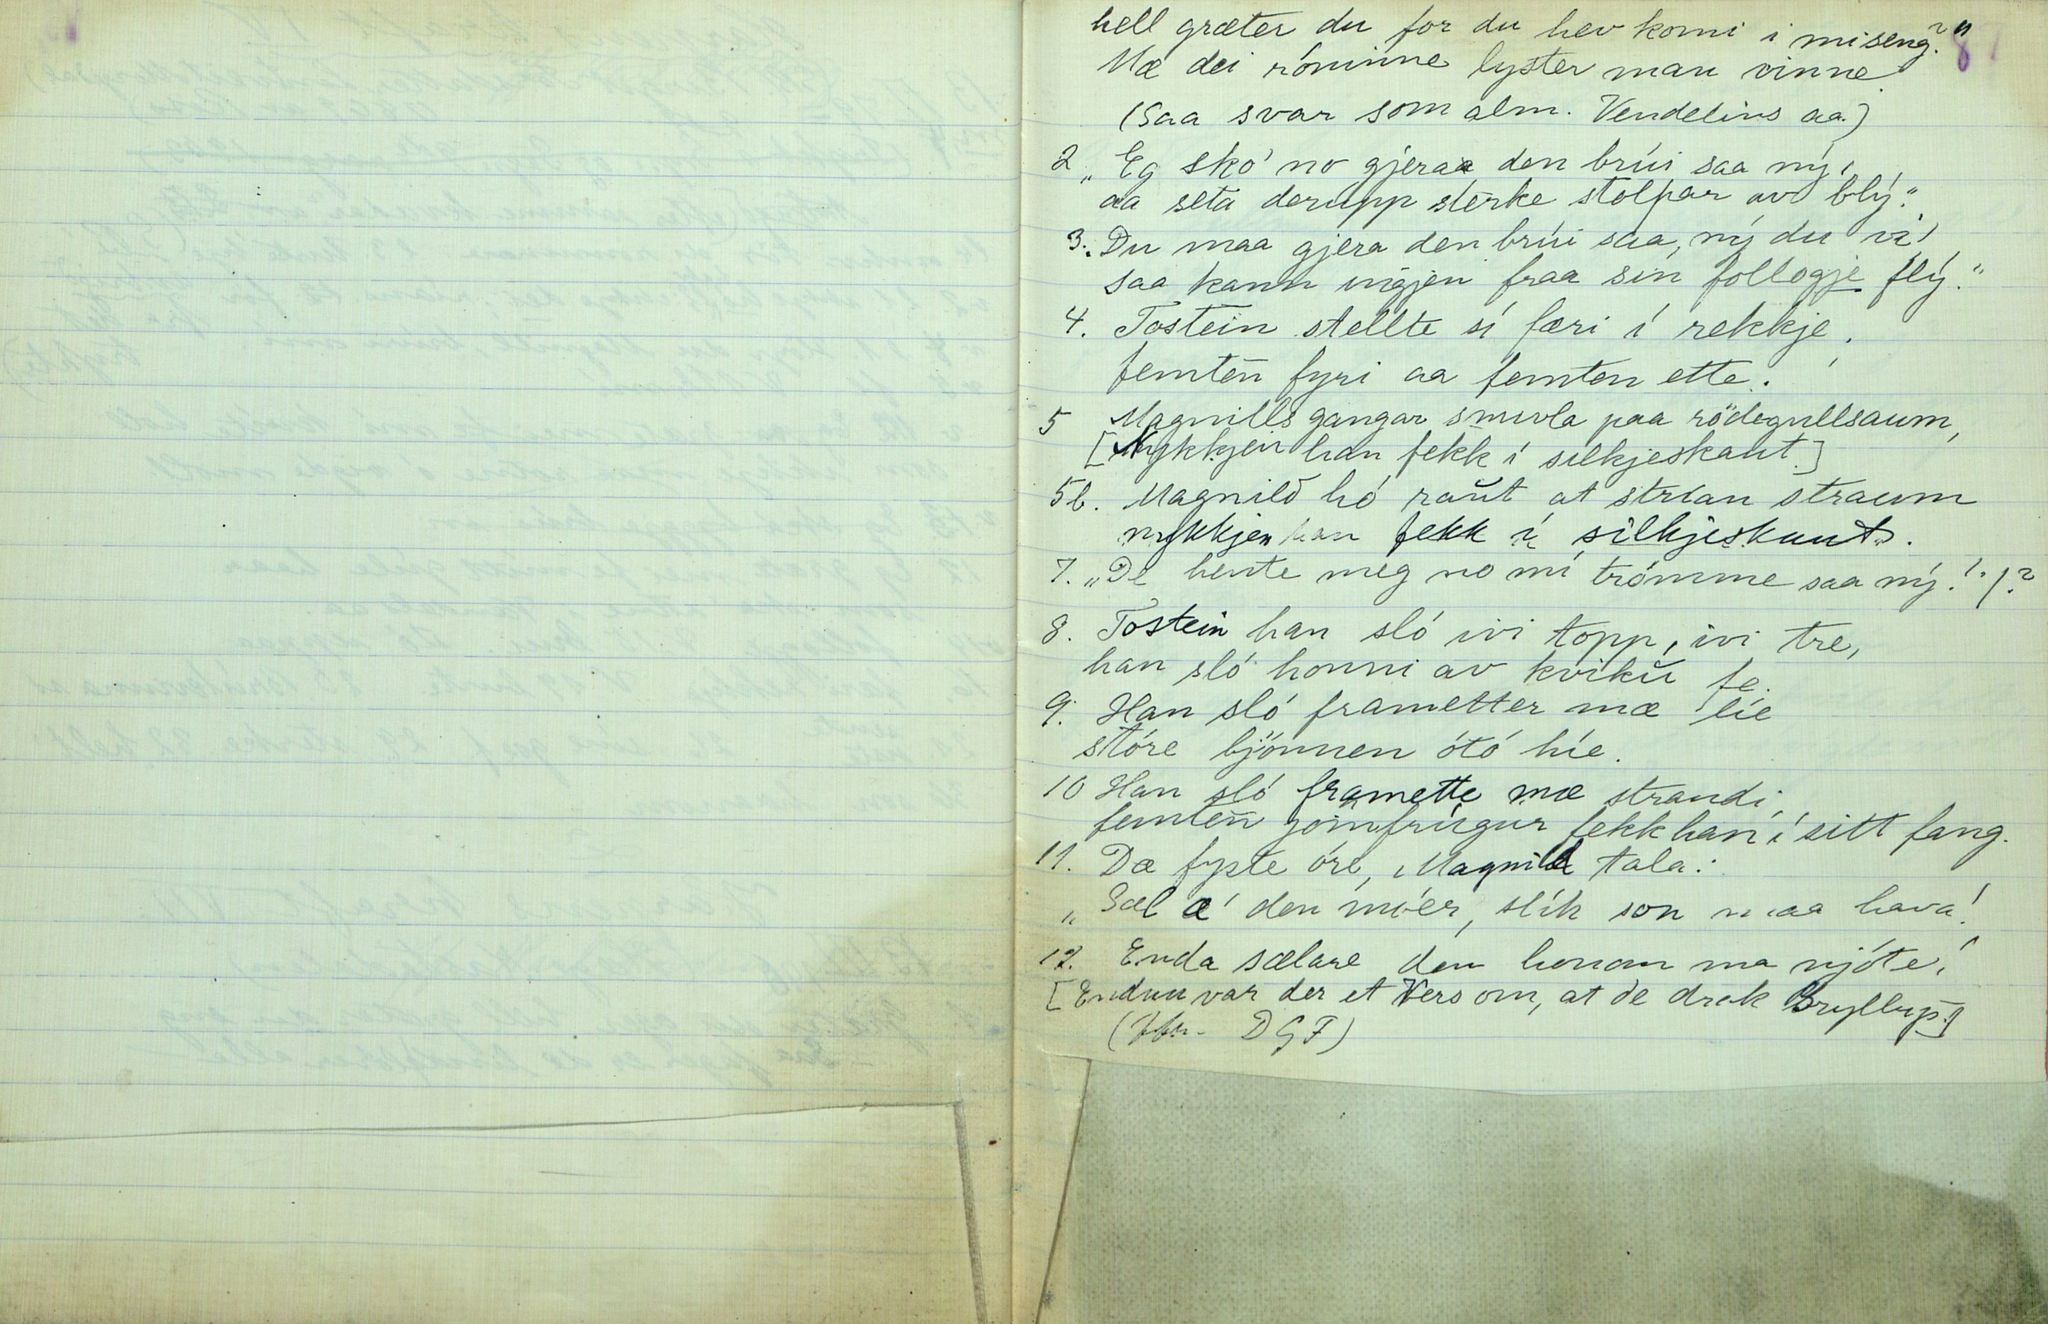 8
hell græter du for du hev komi i mi seng?"
Mæ dei róninne lyster man vinne
(Saa svar som alm. Vendelins aa)
2 „Eg sko' no gjera den brúi saa ný,
aa seta derupp sterke stolpar av blý."
3. Du maa gjera den brúi saa ný du vi'
saa kann ingjen fraa sin follogje flý."
4. Tostein stellte si færi í rekkje,
femten fyri aa femten ette.
5 Magnills gangar snuvla paa rödegullsaum,
[Nykkjen han fekk í silkjeskaut]
5b. Magnild hó raut at strian straum
nykkjen han fekk í silkjeskaut.
7. „De hente meg no mi trómme saa ný!" !?
8. Tostein han sló ivi topp, ivi tre,
han sló honni av kviku fe.
9. Han sló frametter mæ lie
stóre bjönnen ótó híe.
10 Han sló framette mæ strandi,
femten jomfrúgur fekk han í sitt fang.
11. Dæ fyste óre, Magnild tala:
„Sæl æ' den móer, slík son maa hava!
12. Enda sælare den honom ma njóte!
[Endnu var der et Vers om, at de drak Bryllup.]
(Jfr. DGF)